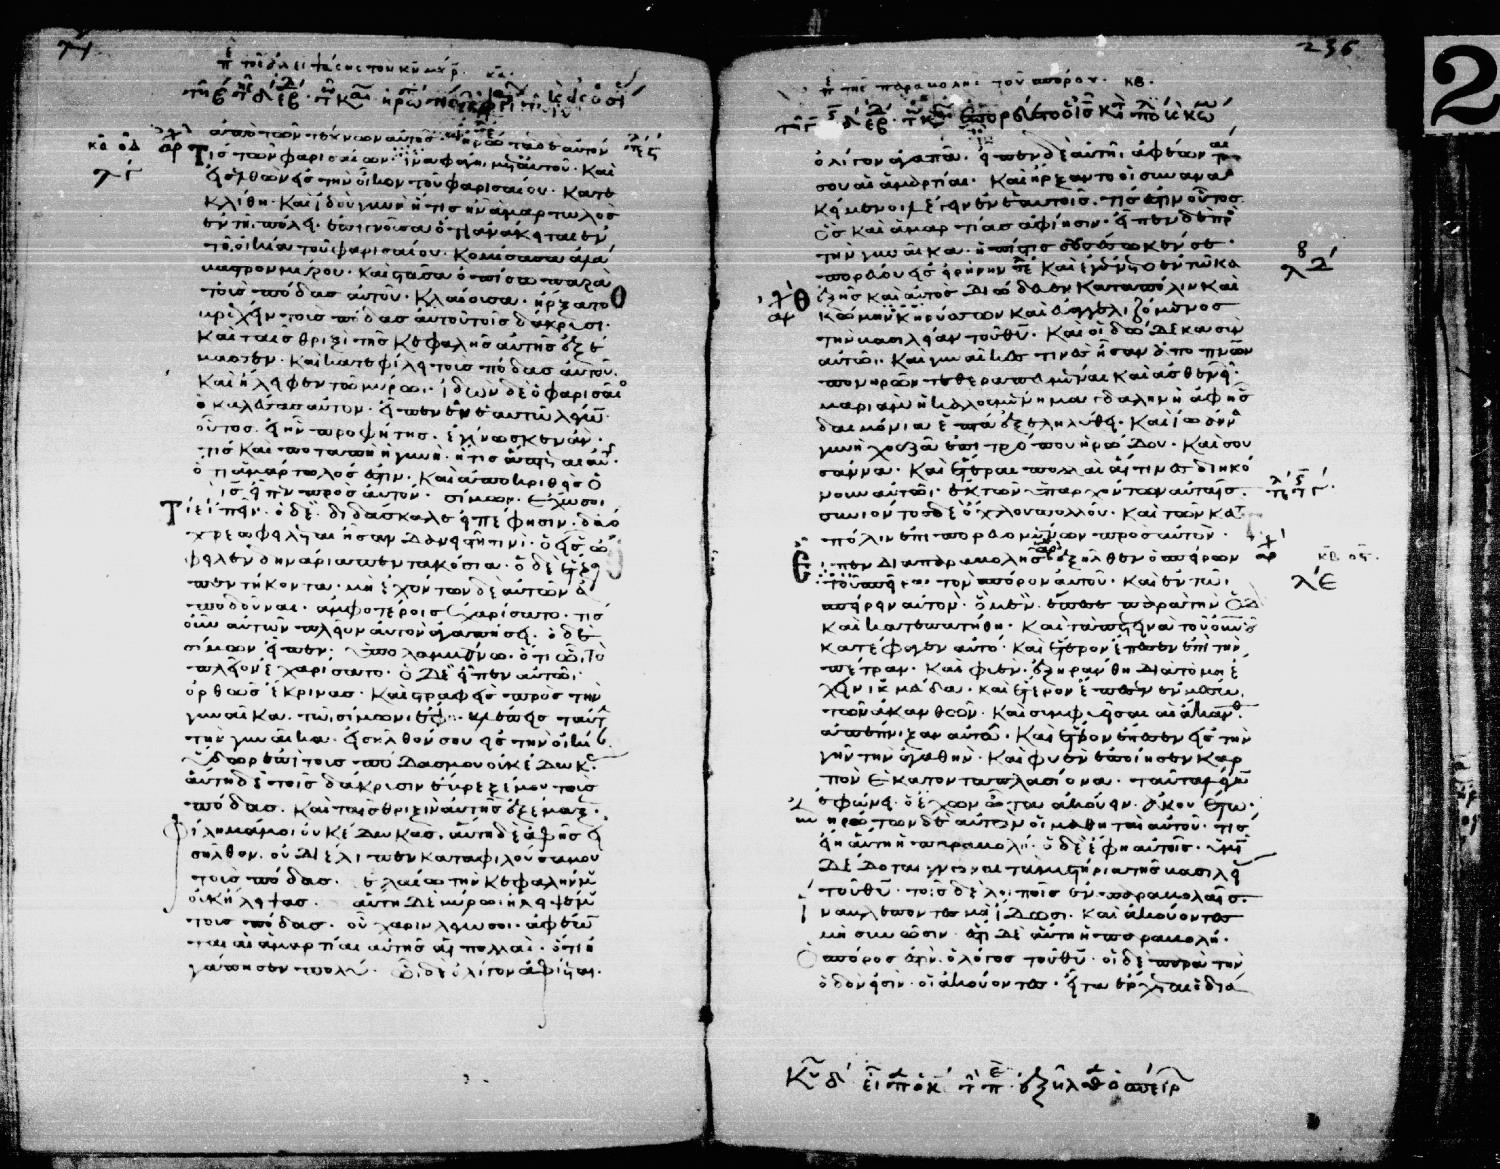 236
2
τῶν τέκνων αὐτῆς
τίς τῶν φαρισαίων ἵνα φάγη μετ αὐτοῦ· Καὶ
εἰσελθὼν εἰς τὴν οἶκον τοῦ φαρισαίου· Κατε
κλίθη· Καὶ ἰδοὺ γυνὴ ἥτις ἦν ἁμαρτωλὸς
ἐν τῆ πόλει· ἐπιγνοῦσα ὅτι ἀνάκειται ἐν
τῆ οἰκία τοῦ φαρισαίου· Κομίσασα ἀλά
βαστρον μύρου· Καὶ στᾶσα ὀπίσω παρὰ
τοὺς πόδας αὐτοῦ· Κλαίουσα· ἤρξατο
βρέχειν τοὺς πόδας αὐτοῦ τοῖς δάκρυσι·
Καὶ ταῖς θριξὶ τῆς Κεφαλῆς αὐτῆς ἐξέ
μασσεν· Καὶ κατεφίλει τοὺς πόδας αὐτοῦ·
Καὶ ἤλειφεν τῶ μύρω· ἰδὼν δὲ ὁ φαρισαῖο
ὁ καλέσας αὐτὸν· εἶπεν ἐν ἑαυτῶ λέγων
οὗτος εἰ ἦν προφήτης· ἐγίνωσκεν ἂν·
τίς Καὶ ποταπὴ ἡ γυνὴ· ἥτις ἅπτεται αὐτοῦ·
ὅτι ἁμαρτωλός ἐστιν· Καὶ ἀποκριθεὶς ὁ
ις εἶπεν πρὸς αὐτόν· σίμων· ἔχω σοι
τι εἰπεῖν· ὁ δὲ· διδάσκαλε εἰπὲ φησιν· δύο
χρεωφειλέται ἦσαν δανειστῆ τινὶ· ὁ εἷς ὤ
φειλεν δηνάρια πεντακόσια· ὁ δὲ ἕτερος
πεντήκοντα· μὴ ἐχόντων δὲ αὐτῶν ἀ
ποδοῦναι· ἀμφοτέροις ἐχαρίσατο· τίς
οὖν αὐτῶν πλεῖον αὐτὸν ἀγαπήσει· ὁ δὲ
σίμων εἶπεν· ὑπολαμβάνω· ὅτι ὧ τὸ
πλεῖον ἐχαρίσατο· ὁ δὲ εἶπεν αὐτῶ·
ὀρθῶς ἔκρινας· Καὶ στραφεὶς πρὸς τὴν
γυναῖκα· τῶ σίμωνι ἔφη· βλέπεις ταύτ
τὴν γυναῖκα· εἰσῆλθόν σου εἰς τὴν οἰκί
ὕδωρ ἐπὶ τοὺς πόδας μου οὐκ ἔδωκ
αὕτη δὲ τοῖς δάκρυσιν ἔβρεξέ μου τοὺς
πόδας· Καὶ ταῖς θριξὶν αὐτῆς ἐξέμαξε·
φίλημά μοι οὐκ ἔδωκας· αὕτη δὲ ἀφ ἧς εἰ
σῆλθον· οὐ διέλιπεν καταφιλοῦσα μου
τοὺς πόδας· ἐλαίω τὴν Κεφαλήν μου
οὐκ ἤλειψας· αὕτη δὲ μύρω ἤλειψέν μου
τοὺς πόδας· οὗ χάριν λέγω σοι· ἀφέων
ται αἱ ἁμαρτίαι αὐτῆς αἱ πολλαὶ· ὅτι ἠ
γάπησεν πολύ· ὧ δὲ ὀλίγον ἀφίεται·
ὀλίγον ἀγαπᾶ· εἶπεν δὲ αὐτῆ· ἀφέωνται
σου αἱ ἁμαρτίαι· Καὶ ἤρξαντο οἱ συνανα
κείμενοι λέγειν ἐν ἑαυτοῖς· τίς ἐστιν οὗτος
ὃς Καὶ ἁμαρτίας ἀφίησιν· εἶπεν δὲ πρὸ
τὴν γυναῖκα· ἡ πίστις σου σέσωκέν σε·
πορεύου εἰς εἰρήνην Καὶ ἐγένετο ἐν τῶ κα
θεξῆς Καὶ αὐτὸς διώδευεν Κατὰ πόλιν Καὶ
Κώμην Κηρύσσων Καὶ εὐαγγελιζόμενος
τὴν βασιλείαν τοῦ θυ· Καὶ οἱ δώδεκα σὺν
αὐτῶ· Καὶ γυναῖκες τινὲς αἳ ἦσαν ἀπὸ πνων
πονηρῶν τεθεραπευμέναι Καὶ ἀσθενει
μαρία ἡ καλουμένη μαγδαληνὴ ἀφ ἧς
δαιμόνια ἑπτὰ ἐξεληλύθει· Καὶ ἰωάννα
γυνὴ χουζᾶ ἐπιτρόπου ἡρώδου· Καὶ σου
σάννα· Καὶ ἕτεραι πολλαὶ αἵτινες διηκό
νουν αὐτῶ· ἐκ τῶν ὑπαρχόντων αὐταῖς·
συνιόντος δὲ ὄχλου πολλοῦ· Καὶ τῶν κα
πόλιν ἐπιπορευομένων πρὸς αὐτὸν·
εἶπεν διὰ παραβολῆς ἐξῆλθεν ὁ σπείρων
τοῦ σπεῖραι τὸν σπόρον αὐτοῦ· Καὶ ἐν τῶ
σπείρειν αὐτὸν· ὃ μὲν· ἔπεσε παρὰ τὴν ὁδ
Καὶ κατεπατήθη· Καὶ τὰ πετεινὰ τοῦ οὐνοῦ
κατέφαγεν αὐτό· Καὶ ἕτερον ἔπεσεν ἐπὶ τὴν
πέτραν· Καὶ φυὲν· ἐξηράνθη διὰ τὸ μὴ ἔ
χειν ἰκμάδα· καὶ ἕτερον ἔπεσεν ἐν μέσω
τῶν ἀκανθῶν· Καὶ συμφυεῖσαι αἱ ἄκανθ
ἀπέπνιξαν αὐτὸ· Καὶ ἕτερον ἔπεσεν εἰς τὴν
γῆν τὴν ἀγαθὴν· Καὶ φυὲν ἐποίησεν Καρ
πὸν ἑκατονταπλασίονα· ταῦτα λέγων
ἐφώνει· ὁ ἔχων ὦτα ἀκούειν· ἀκουέτω·
ἐπηρώτων δὲ αὐτὸν οἱ μαθηταὶ αὐτοῦ· τίς
εἴη αὕτη ἡ παραβολή· ὁ δὲ ἔφη αὐτοῖς· ὑμῖ
δέδοται γνῶναι τὰ μυστήρια τῆς βασιλεί
τοῦ θυ· τοῖς δὲ λοιποῖς ἐν παραβολαῖς·
ἵνα βλέποντες μὴ ἴδωσι· Καὶ ἀκούοντες
μὴ συνιῶσιν· ἔστι δὲ αὕτη ἡ παραβολή·
ὁ σπόρος ἐστὶν ὁ λόγος τοῦ θυ· οἱ δὲ παρὰ τὴν
ὁδόν εἰσιν· οἱ ἀκούοντες· εἶτα ἔρχεται ὁ διά